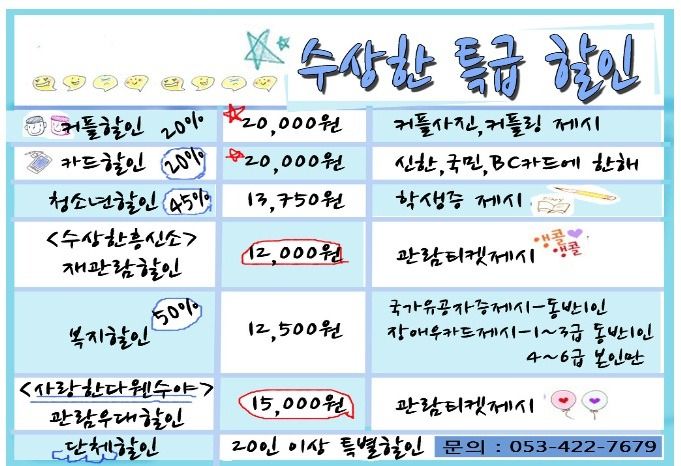 수상한 특급 할인
커플할인 20% 20,000원 커플사진,커플링 제시
카드할인 20% 20,000원 신한,국민,BC카드에 한해
청소년할인 45% 13,750원 학생증 제시
<수상한흥신소>
재관람할인 12,000원 관람티켓제시 앵콜
앵콜
복지할인 50% 12,500원 국가유공자증제시-동반1인
장애우카드제시-1~3급 동반1인
4~6급 본인만
<사랑한다웬수야>
관람우대할인 15,000원 관람티켓제시
단체할인 20인 이상 특별할인 문의 : 053-422-7679